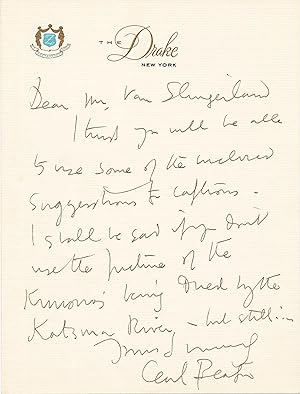 THE Drake
NEW YORK
Dear Mr. Van Slingerland
I trust you will be able
to use some of the enclosed
suggestions to captions -
I shall be sad if you don't
use the picture of the
Kimonos being Dried by the
Katsura River, - but still...
Yours sincerely
Cecil Beaton